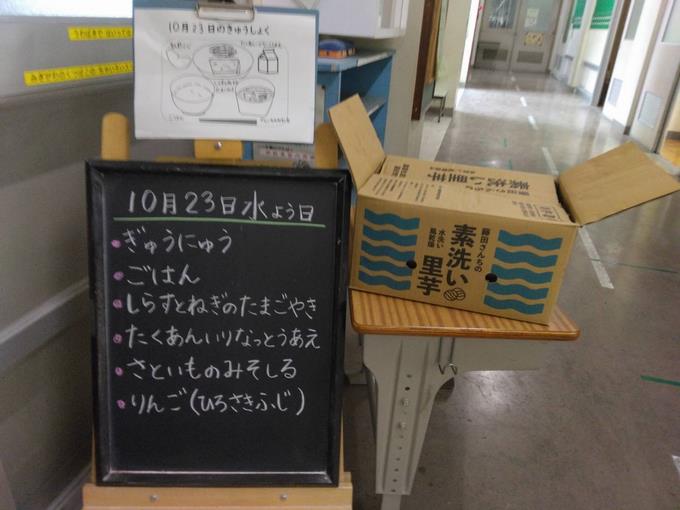 10月23日のきゅうしょく
10月23日水よう日
ぎゅうにゅう
ごはん
しらすとねぎのたまごやき
たくあんいりなっとうあえ
さといものみそしる
りんご(ひろさきふじ)
藤田さんちの
素洗い里芋
水洗い
風乾燥